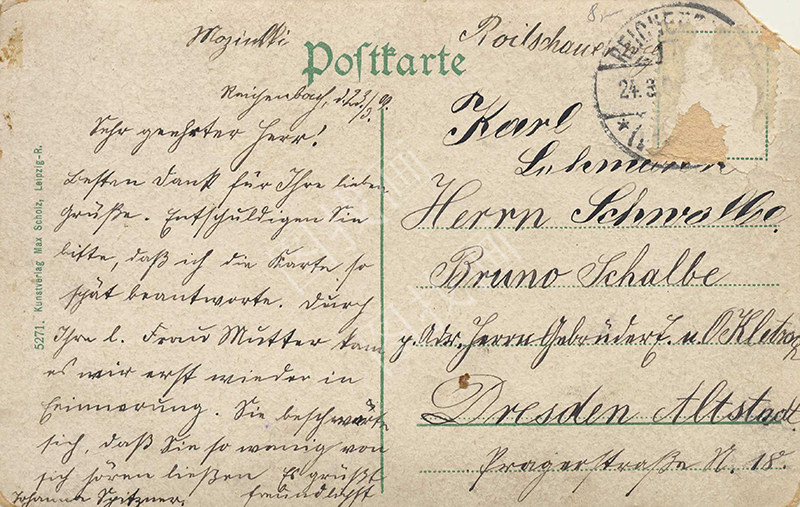 Mozinski
Postkarte
REICHENB
24. 3
Reichenbach, d. 23./3. 09.
Sehr geehrter Herr!
Besten Dank für Ihre lieben
Grüße. Entschuldigen Sie
bitte, daß ich die Karte so
spät beantworte. Durch
Ihre l. Frau Mutter kam
es mir erst wieder in
Erinnerung. Sie beschwerte
sich, daß Sie so wenig von
sich hören ließen. Es grüßt
freundlichst
Johanna Spitzner.
5271. Kunstverlag Max Scholz, Leipzig-R.
Karl
Lehmann
Herrn Schwalbe
Bruno Schalbe
p. Adr. Herrn Gebrüder E. u. O.
Dresden Altstadt
Pragerstraße N. 18.